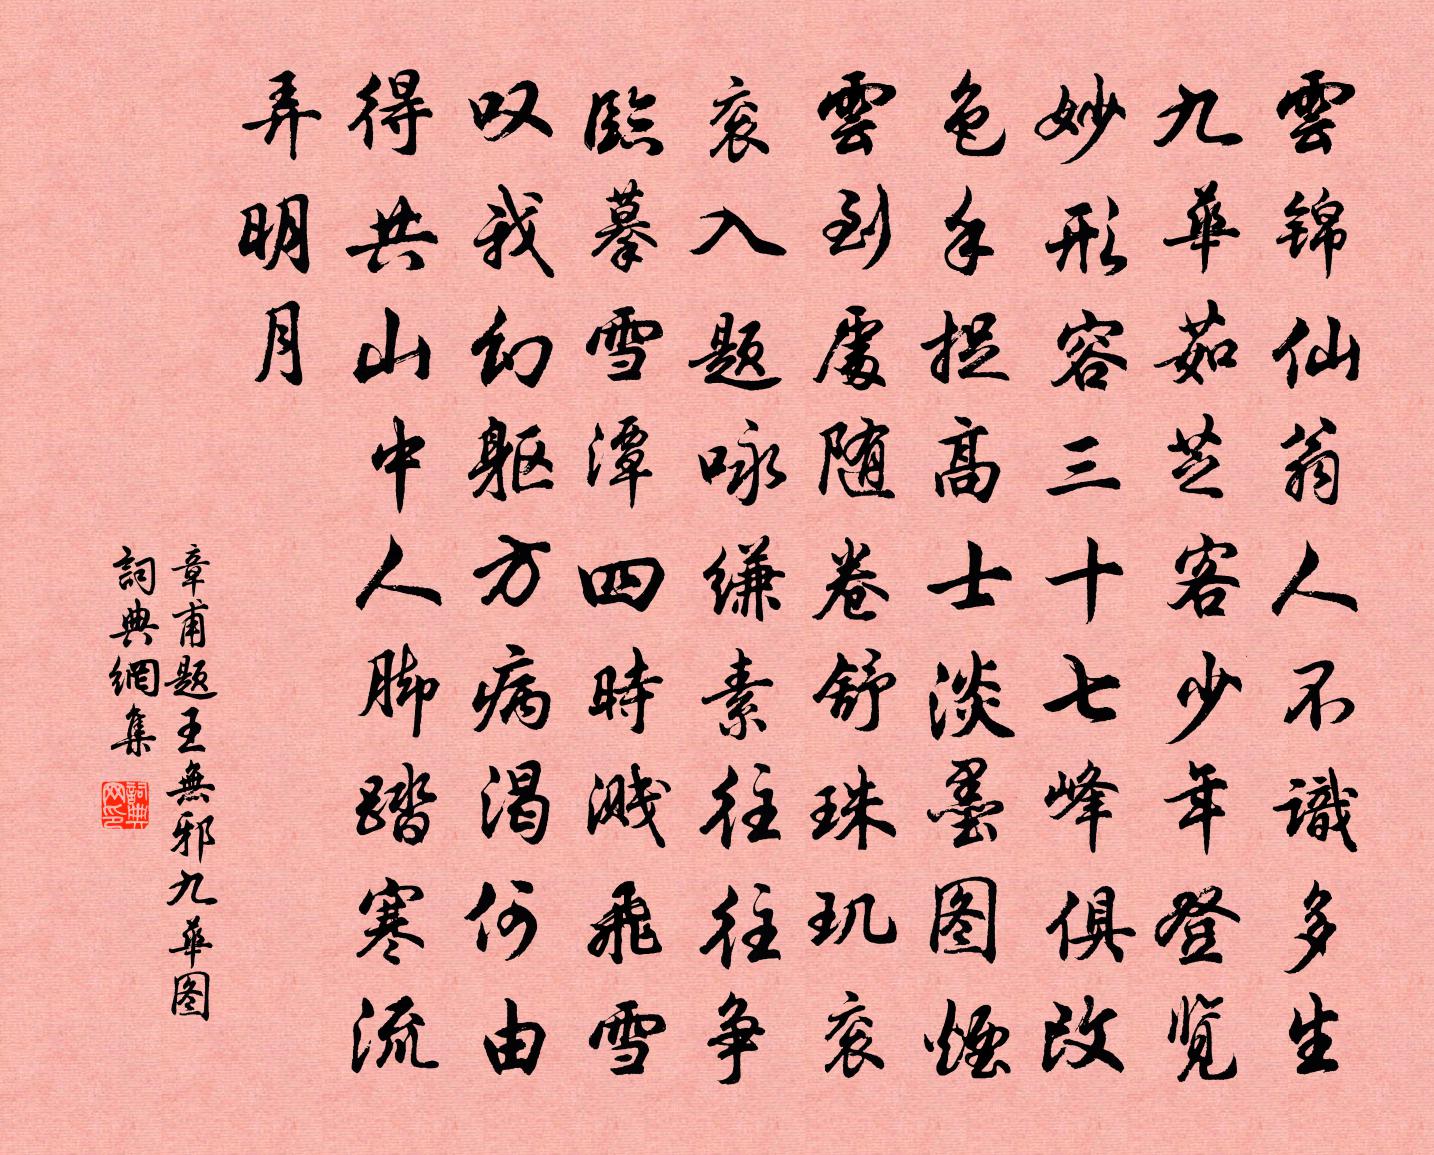 雲锦仙翁人不識多生
九華茹芝客少年登览
妙形容三十七峰俱改
色手捉高士淡墨图煙
雲到處随卷舒珠玑衮
衮入题咏缣素往往争
臨摹雪潭四時溅飛雪
叹我幻躯方病渴何由
得共山中人脚踏寒流
弄明月
章甫题王無邪九華图
詞典網集
詞典网印